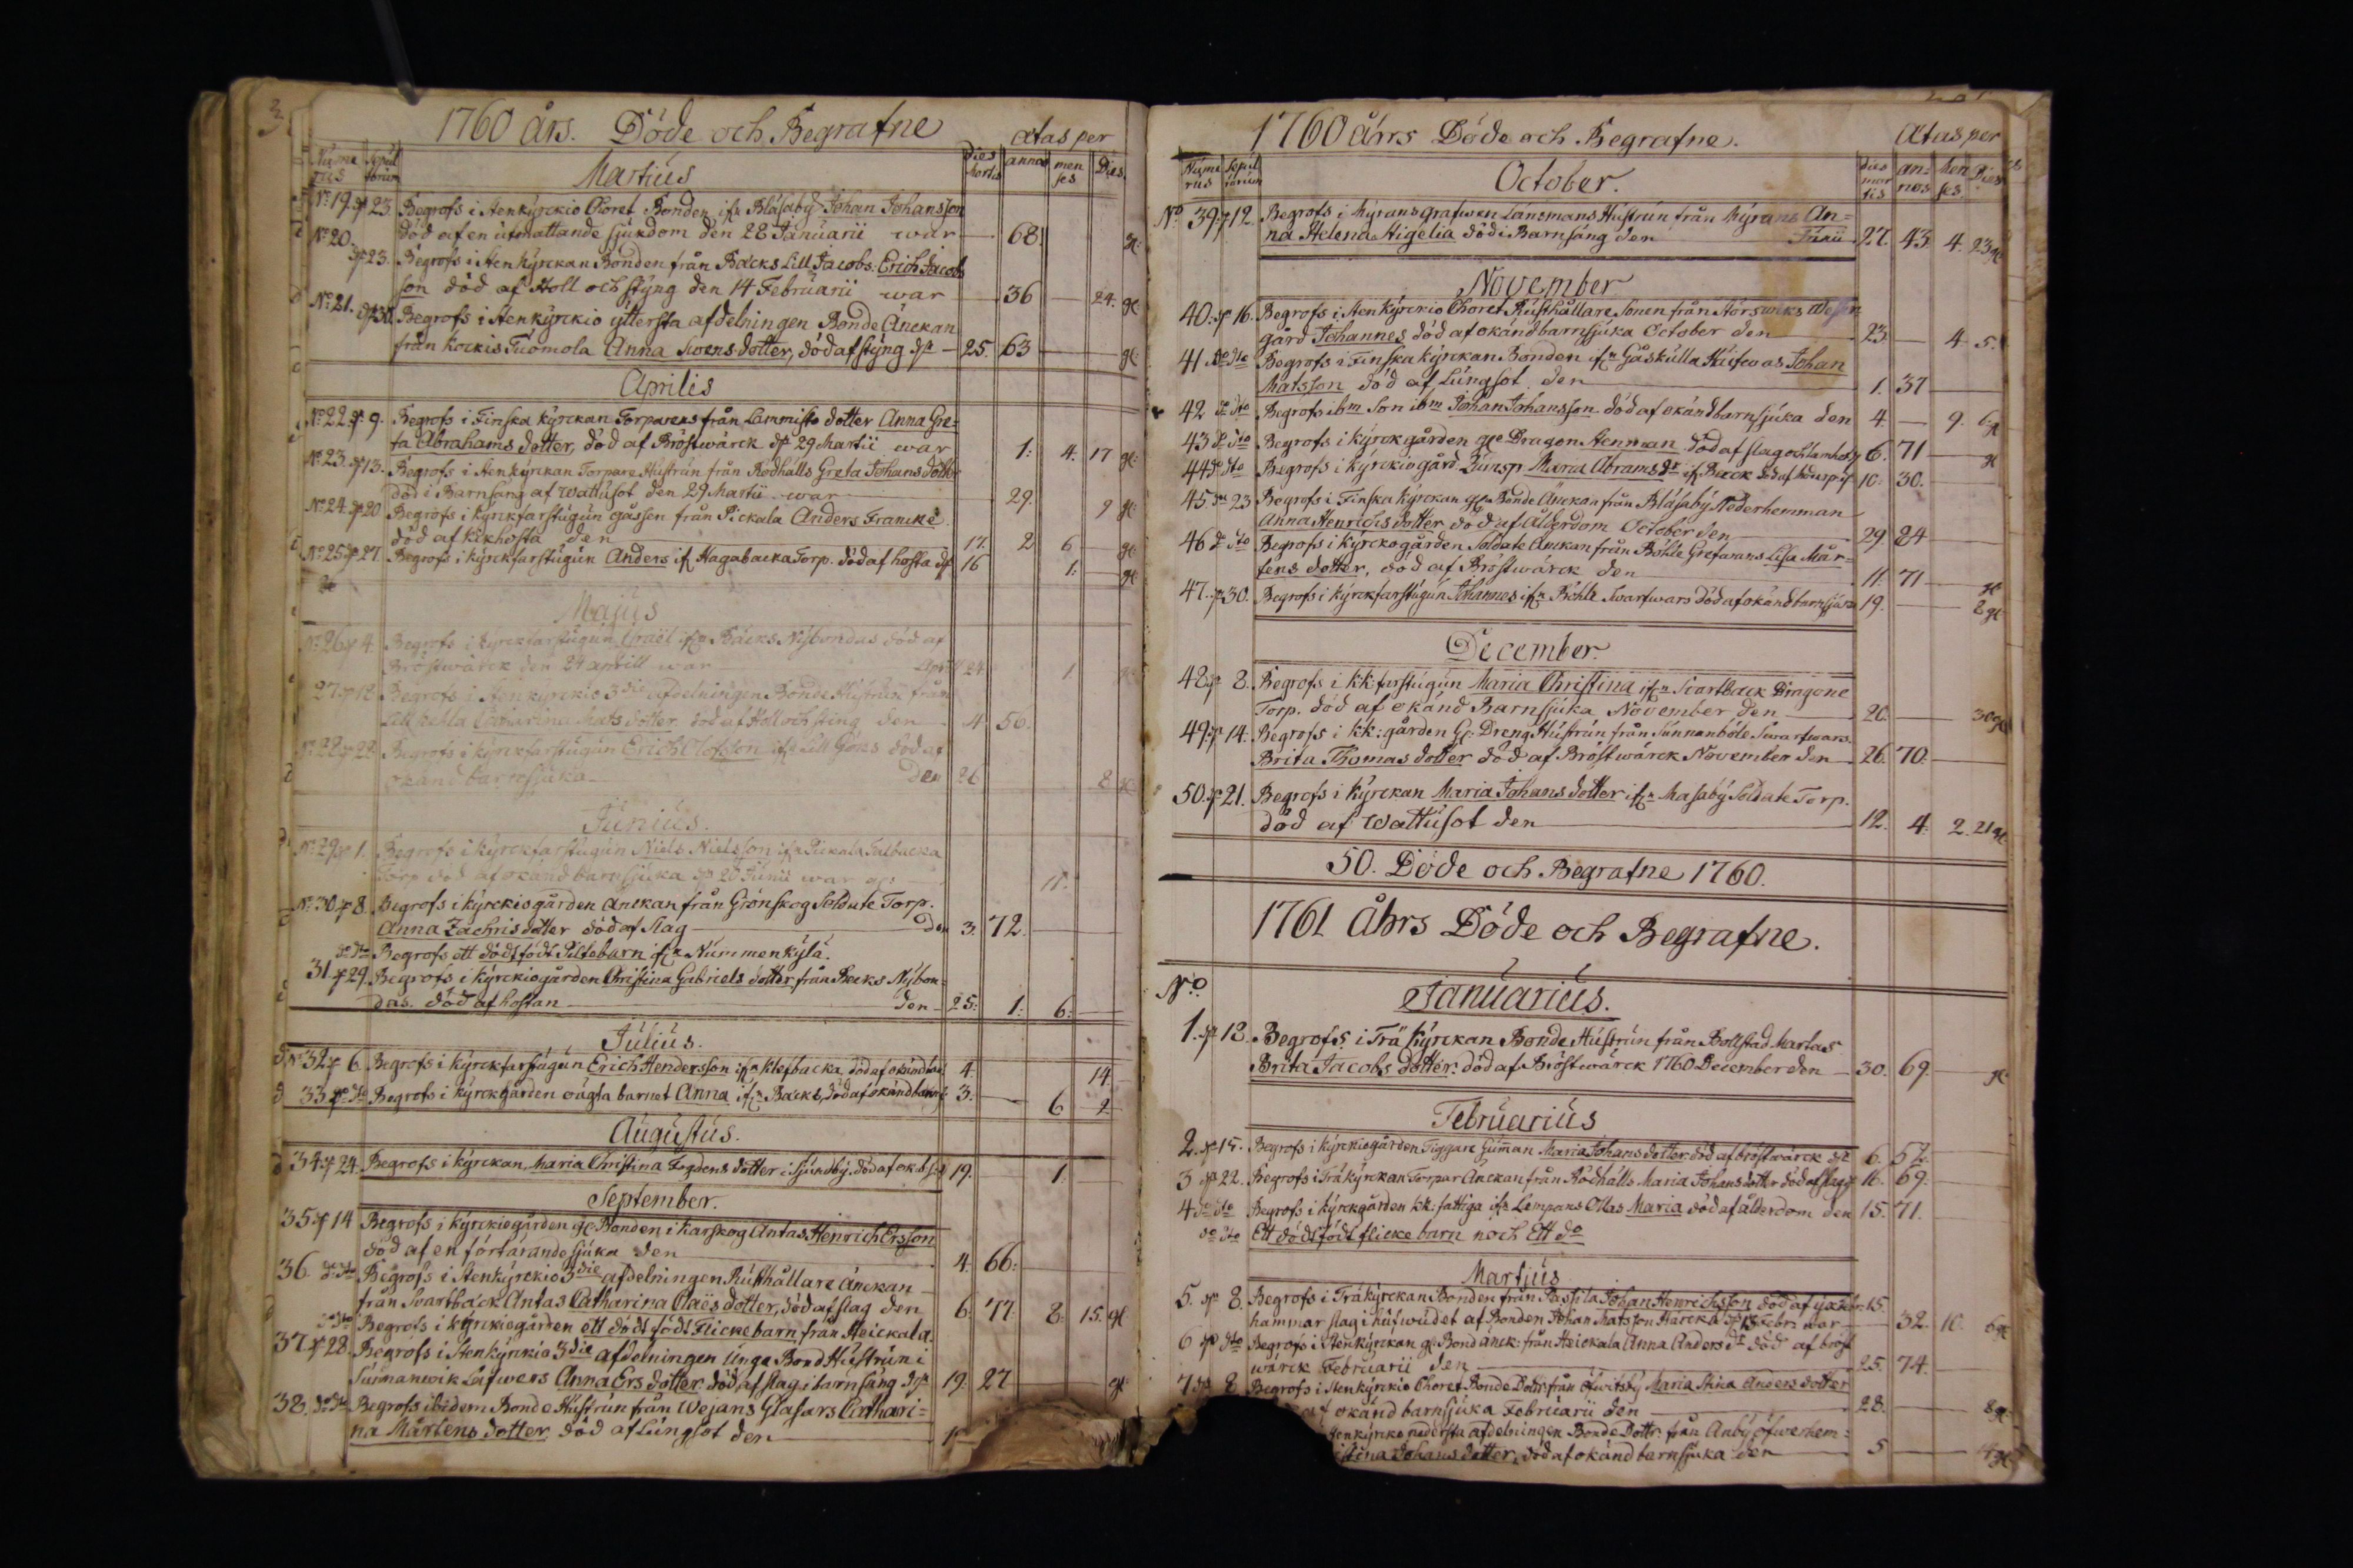 3
1760 års. Döde och Begrafne
ætas per
Nume rus
Sepul torum
Martius
Dies Mortis
annos
men ses
Dies
No 19. 23. Begrofs i Stenkyrckio Choret Bonden ifn Blåsaby Johan Johansson
död af en utmattande sjukdom den 28 Januarii war 68. gl.
No 20. 23. Begrofs i Stenkyrckan Bonden från Bäcks Lill Jacobs: Erich Jacobs
son död af Håll och styng den 14 Februarii war 36 — 24. gl
No 21. 30. Begrofs i Stenkyrckio yttersta afdelningen Bonde Änckan
från Kockis Tuomola Anna Swens dotter, död af styng 25. 63 gl.
Aprilis
No 22. 9. Begrofs i Finska kyrckan Torparens från Lammisto dotter Anna Gre=
ta Abrahams dotter, död af Bröstwärck 29 Martii war 1: 4. 17 gl:
No 23. 13. Begrofs i Stenkyrckan Torpare Hustrun från Rödhälls Greta Johans dotter
död i Barnsäng af Wattusot den 29 Martii war 29. 9 gl:
No 24. 20 Begrofs i kyrckfarstugun gåssen från Pickala Anders Francke
död af kikhosta den 17. 2 6 — gl:
No 25. 27. Begrofs i kyrckfarstugun Anders if Hagabacka Torp. död af hosta 16 1: — gl
Majus
No 26. 4. Begrofs i kyrckfarstugun Israël ifn Bäcks Nybondas död af
Bröstwärck den 24 aprill war April 24 1
27. 18 Begrofs i Stenkyrckio 3die afdelningen Bonde Hustrun från
Lill Catharina Mats dotter död af Håll och sting den 4 56.
No 28. 22 Begrofs i kyrckfarstugun Erich Olofsson ifn Lill död af
okänd barnsjuka den 26 8 gl
Junius.
No 29. 1. Begrofs i kyrckfarstugun Niels Nielsson ifn Pickala Talbacka
Torp död af okänd barnsjuka 20 Junii war 11.
No 30. 8. Begrofs i kyrckiogården Anckan från Grönskog Soldate Torp.
Anna Zachris dotter död af slag den 3. 72.
do dto Begrofs ett dödt födt Piltebarn ifn Nummenkylä.
31. 29. Begrofs i kyrckiogården Christina Gabriels dotter från Backs Nybon=
das. död af hostan den 25: 1: 6: —
Julius.
No 32. 6. Begrofs i kyrckfarstugun Erich Hendersson ifn Klefbacka, död af okänd 4. 14.
33. do dto Begrofs i kyrckgården oägta barnet Anna ifn Backs, död af okänd 3. — 6 2
Augustus.
34. 24. Begrofs i kyrckan Maria Christina Fogdens dotter i Sjundby. död af ok. 19. 1.
September.
35. 14 Begrofs i kyrckiogården gl. Bonden i Karskog Antas Henrich Ersson
död af en förtärande sjuka den 4. 66:
36. do dto Begrofs i Stenkyrckio 3die afdelningen Rusthållare Änckan
från Svartbäck Antas Catharina Claës dotter, död af slag den 6. 77. 8: 15. gl
do dto Begrofs i kyrckiogården ett dödt födt Flickebarn från Heickala.
37. 28. Begrofs i Stenkyrckio 3die afdelningen Unga Bond Hustrun i
Sunnanwik Låfwers Anna Ers dotter död af slag i barnsäng 19. 27 — gl
38. do dto Begrofs ibidem Bonde Hustrun från Wejans Glasars Cathari=
na Mårtens dotter död af Lungsot den
1760 åhrs Döde och Begrafne.
Ætas per
Nume rus
Sepul torum
October.
dies mor tis
an= nos
Men ses.
Dies
No 39. 12. Begrofs i Myrans grafwen Länsmans Hustrun från Myrans An=
na Helena Aigelia död i Barnsäng den Junii 27. 43 4. 23 gl
November
40. 16. Begrofs i Stenkyrckio Choret Rusthållare Sonen från Störswiks
gård Johannes död af okänd barnsjuka October den 23. — 4. 5.
41 do dto Begrofs i Finska kyrckan Bonden ifn Gåskulla Hufwas Johan
Matsson död af Lungsot den 1. 37
42 do dto Begrofs ibm Son ibm Johan Johansson död af okänd barnsjuka den 4. — 9. 6. gl
43 do dto Begrofs i kyrckgården gle Dragon Stenman död af slag och lamhet 6. 71 — gl
44 do dto Begrofs i kyrckiogård Jumsp. Maria Abrams dr if Back död af 10. 30.
45. 23 Begrofs i Finska kyrckan gl Bonde Änckan från Blåsaby Nederhemman
Anna Henrichs dotter död af ålderdom October den 29. 84
46 do dto Begrofs i kyrckogården Soldate Änckan från Böhle Grefarans Lisa Mår=
tens dotter, död af Bröstwärck den 11. 71 — gl
47. 30. Begrofs i kyrckfarstugun Johannes ifn Böhle Swartwars död af okänd barnsjuka 19. — 8 gl
December.
48. 8. Begrofs i kk: farstugun Maria Christina ifn Svartback Dragone
Torp. död af okänd Barnsjuka November den 20. — 30 gl
49. 14. Begrofs i kk: gården gl. Dreng Hustrun från Sunnanböle Swartwars.
Brita Thomas dotter död af Bröstwärck November den 26. 70.
50. 21. Begrofs i kyrckan Maria Johans dotter ifn Masaby Soldate Torp.
död af Wattusot den 12. 4. 2. 21 gl
50. Döde och Begrafne 1760.
1761 Åhrs Döde och Begrafne.
No.
Januarius.
1. 18. Begrofs i Trä kyrckan Bonde Hustrun från Bollstad Martas
Brita Jacobs dotter. död af Bröstwärck 1760 December den 30. 69. — gl
Februarius
2. 15. Begrofs i kyrckiogården Tiggare Gum̄an Maria Johans dotter. död af bröstwärck 6. 52.
3 22. Begrofs i Träkyrckan Torpar Änckan från Rödhälls Maria Johans dotter död af slag 16. 69.
4 do dto Begrofs i kyrckgården kk: fattiga ifn Lampans Ollas Maria död af ålderdom den 15. 71.
do dto Ett dödt födt flicke barn noch Ett do
Martius
5. 8. Begrofs i Träkyrckan Bonden från Passila Johan Henrichsson död af yxe 15.
hammar slag i hufwudet af Bonden Johan Matsson Härcka 15 Febr. war 32. 10. 6 gl
6 dto Begrofs i Stenkyrckan gl. Bond änck: från Heickala Anna Anders dr död af bröst
wärck Februarii den 25. 74.
7 8 Begrofs i Stenkyrckio Choret Bonde Dottr från Öfwitsby Maria Stina Anders dotter
af okänd barnsjuka Februarii den 28. — 8 gl
Stenkyrkio nedersta afdelningen Bonde Dottr. från Anby öfwerhem=
Johans dotter, död af okänd barnsjuka den 5